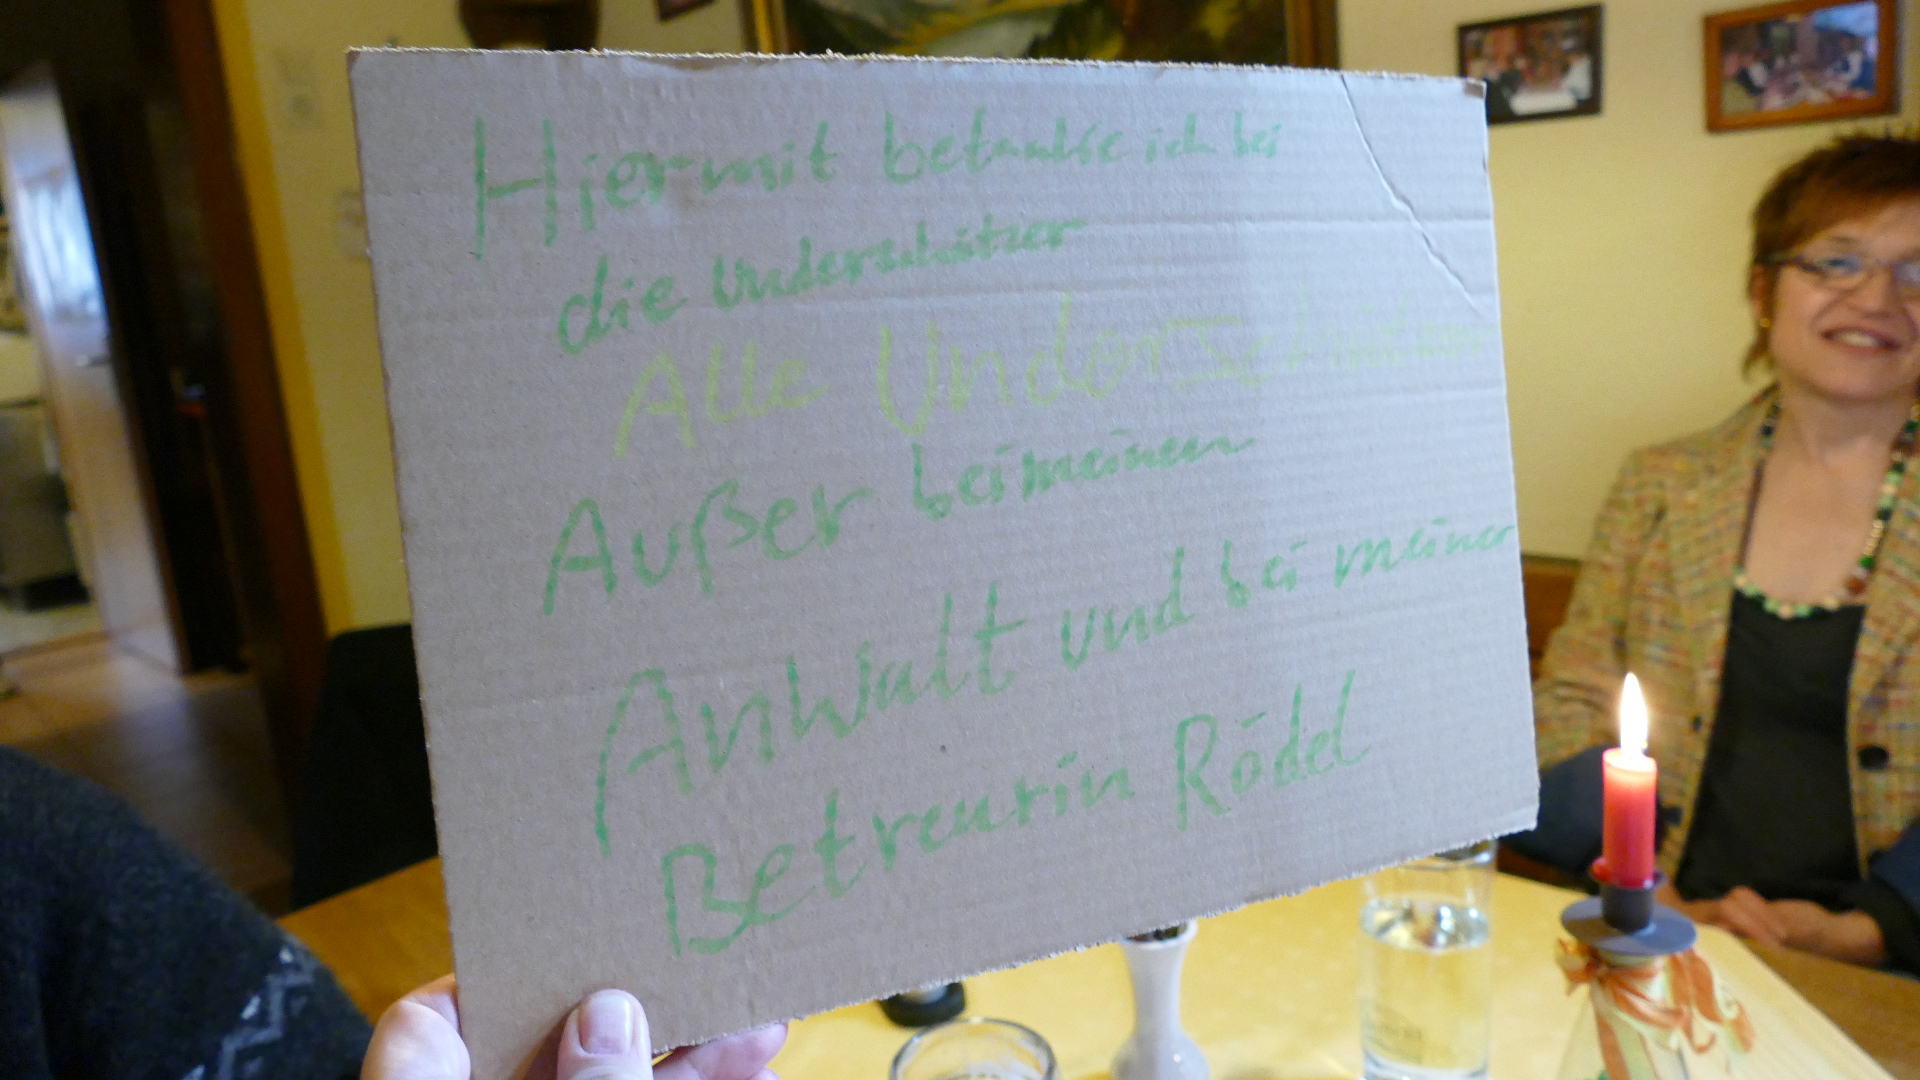 Hiermit betanke ich bei
die Underschützer
Alle Underschützer
Außer bei meinen
Anwalt und bei meiner
Betreurin Rödel